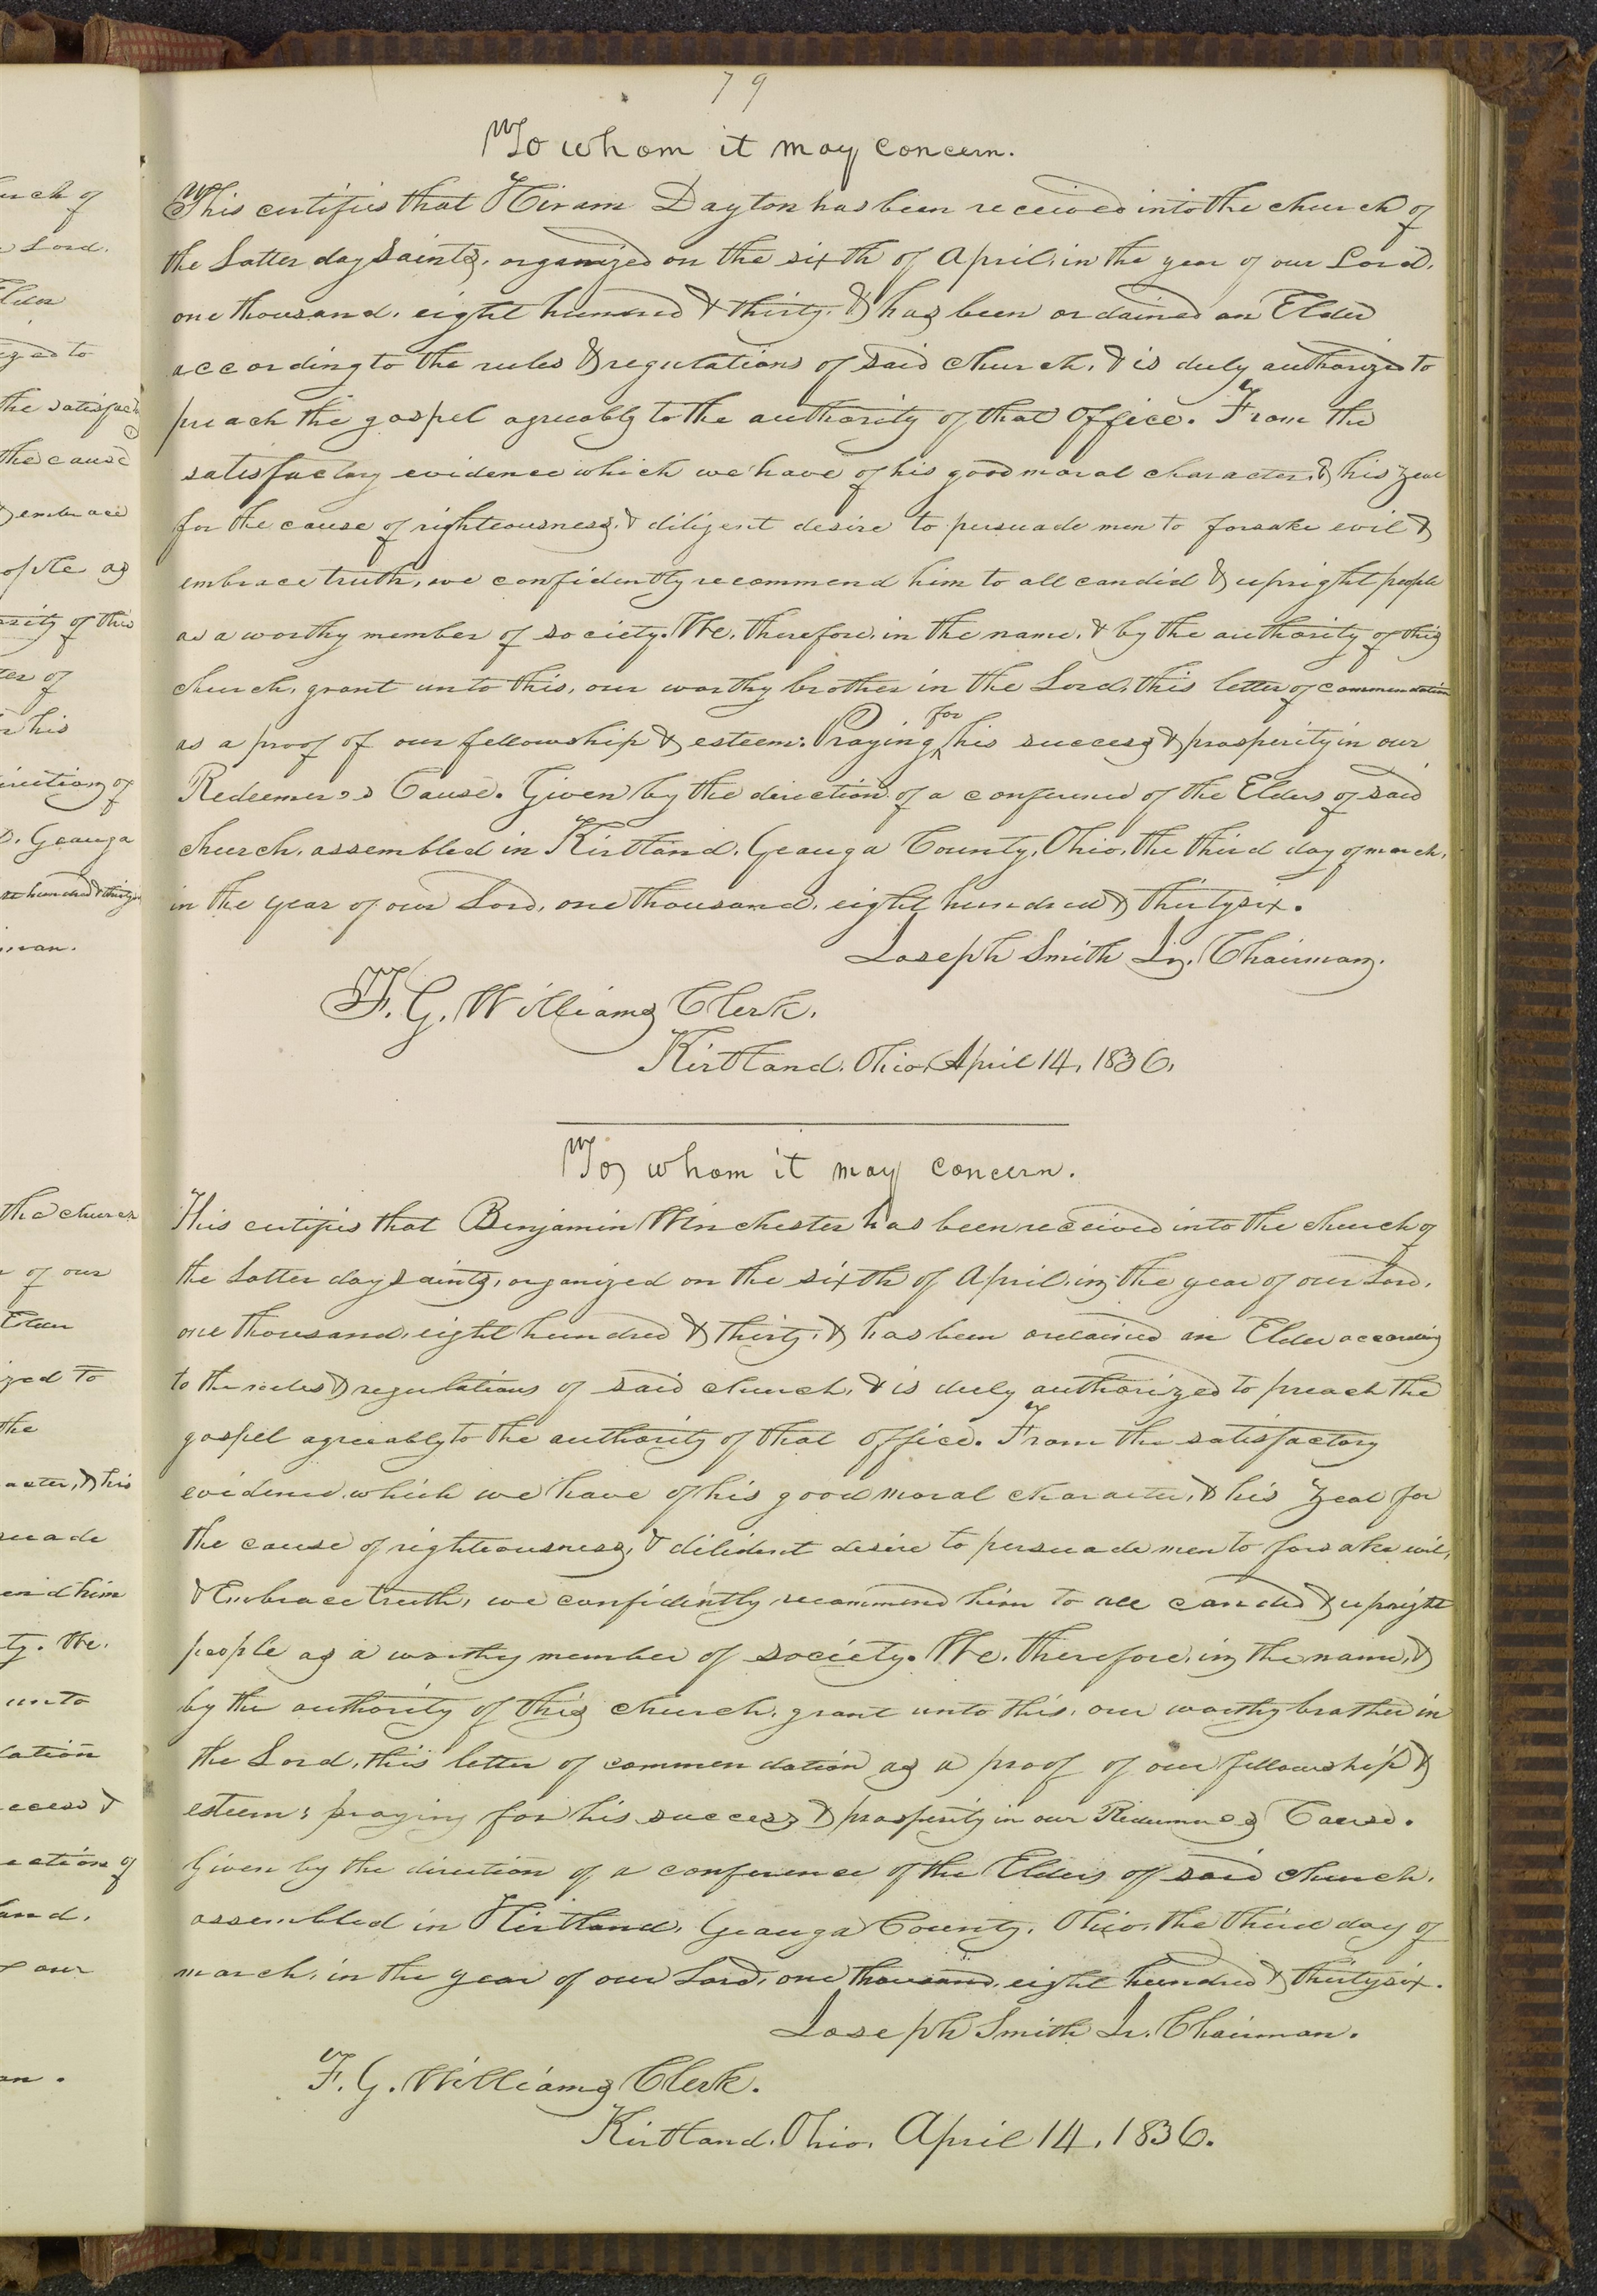 79
To whom it may concern.
This certifies that Hiram Dayton has been received into the church of
the Latter day Saints, organized on the sixth of April, in the year of our Lord,
one thousand, eight hundred & thirty, & has been ordained an Elder
according to the rules & regulations of said church, & is duly authorized to
preach the gospel agreeably to the authority of that Office. From the
satisfactory evidence which we have of his good moral character, & his zeal
for the cause of righteousness, & diligent desire to persuade men to forsake evil &
embrace truth, we confidently recommend him to all candid & upright people
as a worthy member of society. We, therefore, in the name, & by the authority of this
church, grant unto this, our worthy brother in the Lord, this letter of commendation
as a proof of our fellowship & esteem: Praying for his success & prosperity in our
Redeemer's Cause. Given by the direction of a conference of the Elders of said
church, assembled in Kirtland, Geauga County, Ohio, the third day of march,
in the year of our Lord, one thousand, eight hundred & thirty six.
Joseph Smith Jr. Chairman.
F. G. Williams Clerk.
Kirtland, Ohio, April 14, 1836.
To whom it may concern.
This certifies that Benjamin Winchester has been received into the church of
the Latter day saints, organized on the sixth of April, in the year of our Lord,
one thousand, eight hundred & thirty, & has been ordained an Elder according
to the rules & regulations of said church, & is duly authorized to preach the
gospel agreeably to the authority of that office. From the satisfactory
evidence which we have of his good moral character, & his zeal for
the cause of righteousness, & dilident desire to persuade men to forsake evil,
& Embrace truth, we confidently recommend him to all candid & upright
people as a worthy member of society. We, therefore, in the name, &
by the authority of this church, grant unto this, our worthy brother in
the Lord, this letter of commendation as a proof of our fellowship &
esteem; praying for his success & prosperity in our Redeemer's Cause.
Given by the direction of a conference of the Elders of said church,
assembled in Kirtland, Geauga County, Ohio, the third day of
march, in the year of our Lord, one thousand, eight hundred & thirty six.
Joseph Smith Jr. Chairman.
F. G. Williams Clerk.
Kirtland, Ohio, April 14, 1836.